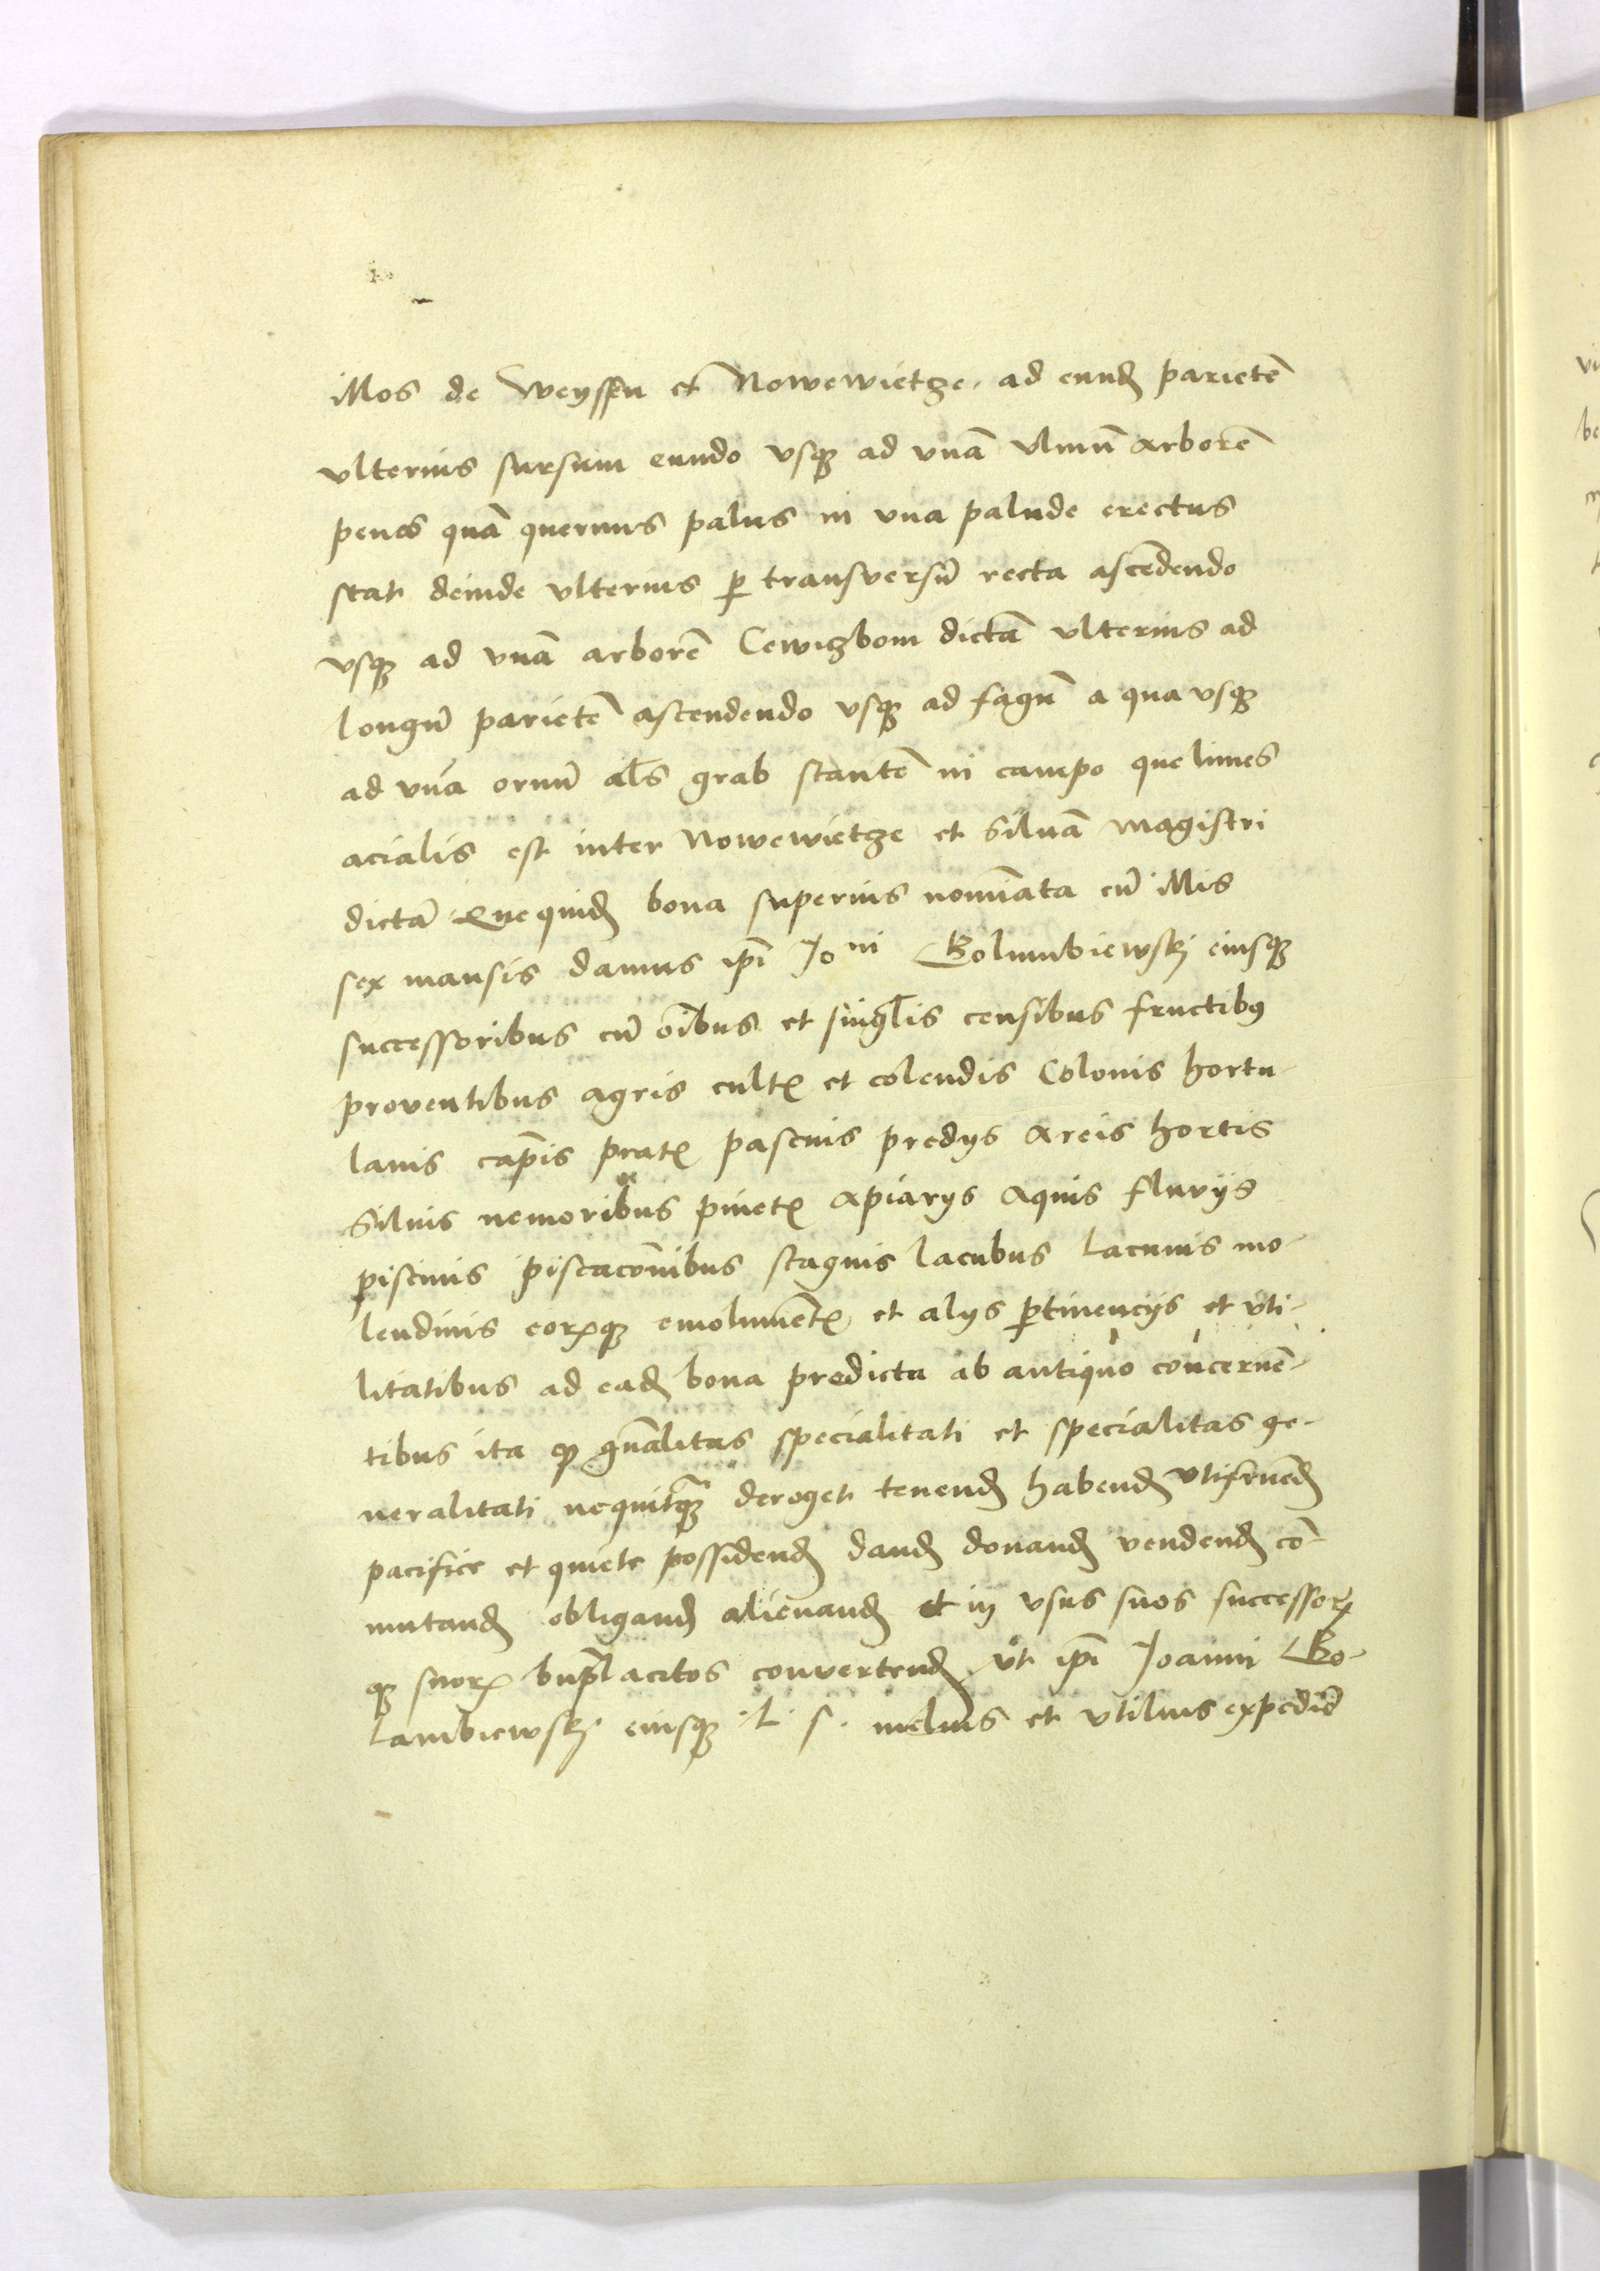 illos de Weyssen et Nowewietze. ad eundꝫ parietē
vlterius sursum eundo vsqꝫ ad vnā vlmū arborē
penes quā quernus palus in vna palude erectus
stat deinde vlterius ꝑ transversū recta ascēdendo
vsqꝫ ad vnā arborē Cewizbom dictā vlterius ad
longū parietē ascendendo vsqꝫ ad fagū a qua vsqꝫ
ad vnā ornū als grab stantē in campo que limes
acialis est inter Nowewietze et siluā magistri
dictā Quequidꝫ bona superius nomīata cū illis
sex mansis damus ip̄i Joni Golumbiewskj eiusqꝫ
successoribus cū oībus et singlis censibus fructibꝰ
proventibus agris cultꝭ et colendis Colonis hortu-
lanis cāpis pratꝭ pascuis predys areis hortis
siluis nemoribus pinetꝭ apiarys aquis fluvijs
piscinis piscacōnibus stagnis lacubus lacunis mo-
lendinis eorꝝqꝫ emolumētꝭ et alys ꝑtinencijs et vti-
litatibus ad eadꝫ bona predicta ab antiquo concernē-
tibus ita ꝙ gnālitas specialitati et specialitas ge-
neralitati nequitqꝫ deroget tenendꝫ habendꝫ vtifruēdꝫ
pacifice et quiete possidendꝫ dandꝫ donandꝫ vendendꝫ cō-
mutandꝫ obligandꝫ alienandꝫ et in vsus suos successorꝝ
qꝫ suorꝝ bnplacitos convertendꝫ vt ip̄i Joanni Go-
lambiewskj eiusqꝫ .L. s. melius et vtilius expedire